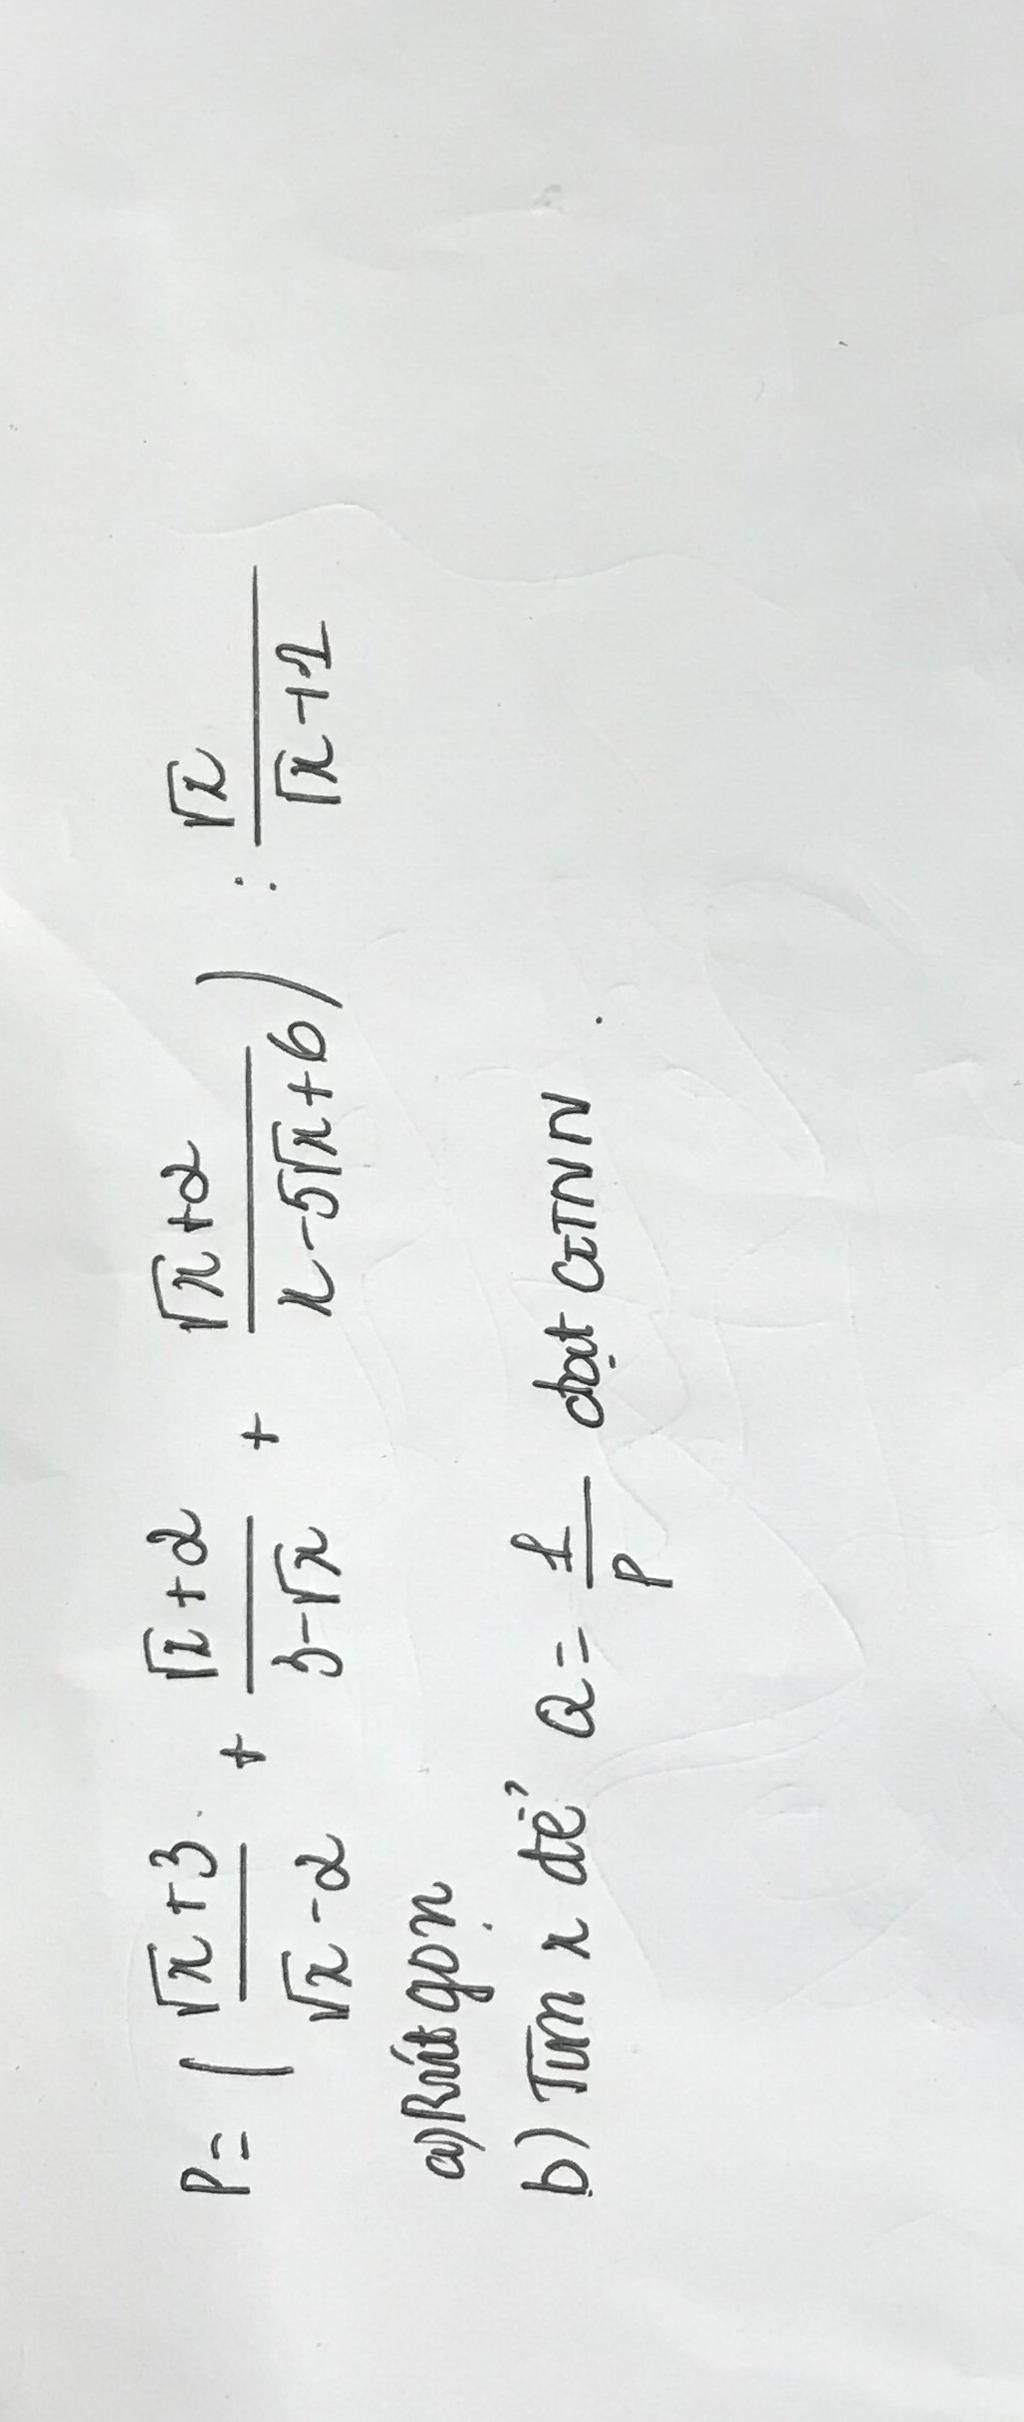 P = ( \frac{\sqrt{x}+3}{\sqrt{x}-2} + \frac{\sqrt{x}+2}{3-\sqrt{x}} + \frac{\sqrt{x}+2}{x-5\sqrt{x}+6} ) : \frac{\sqrt{x}}{\sqrt{x}+1}
a) Rút gọn
b) Tìm x để Q = \frac{1}{P} đạt GTNN.